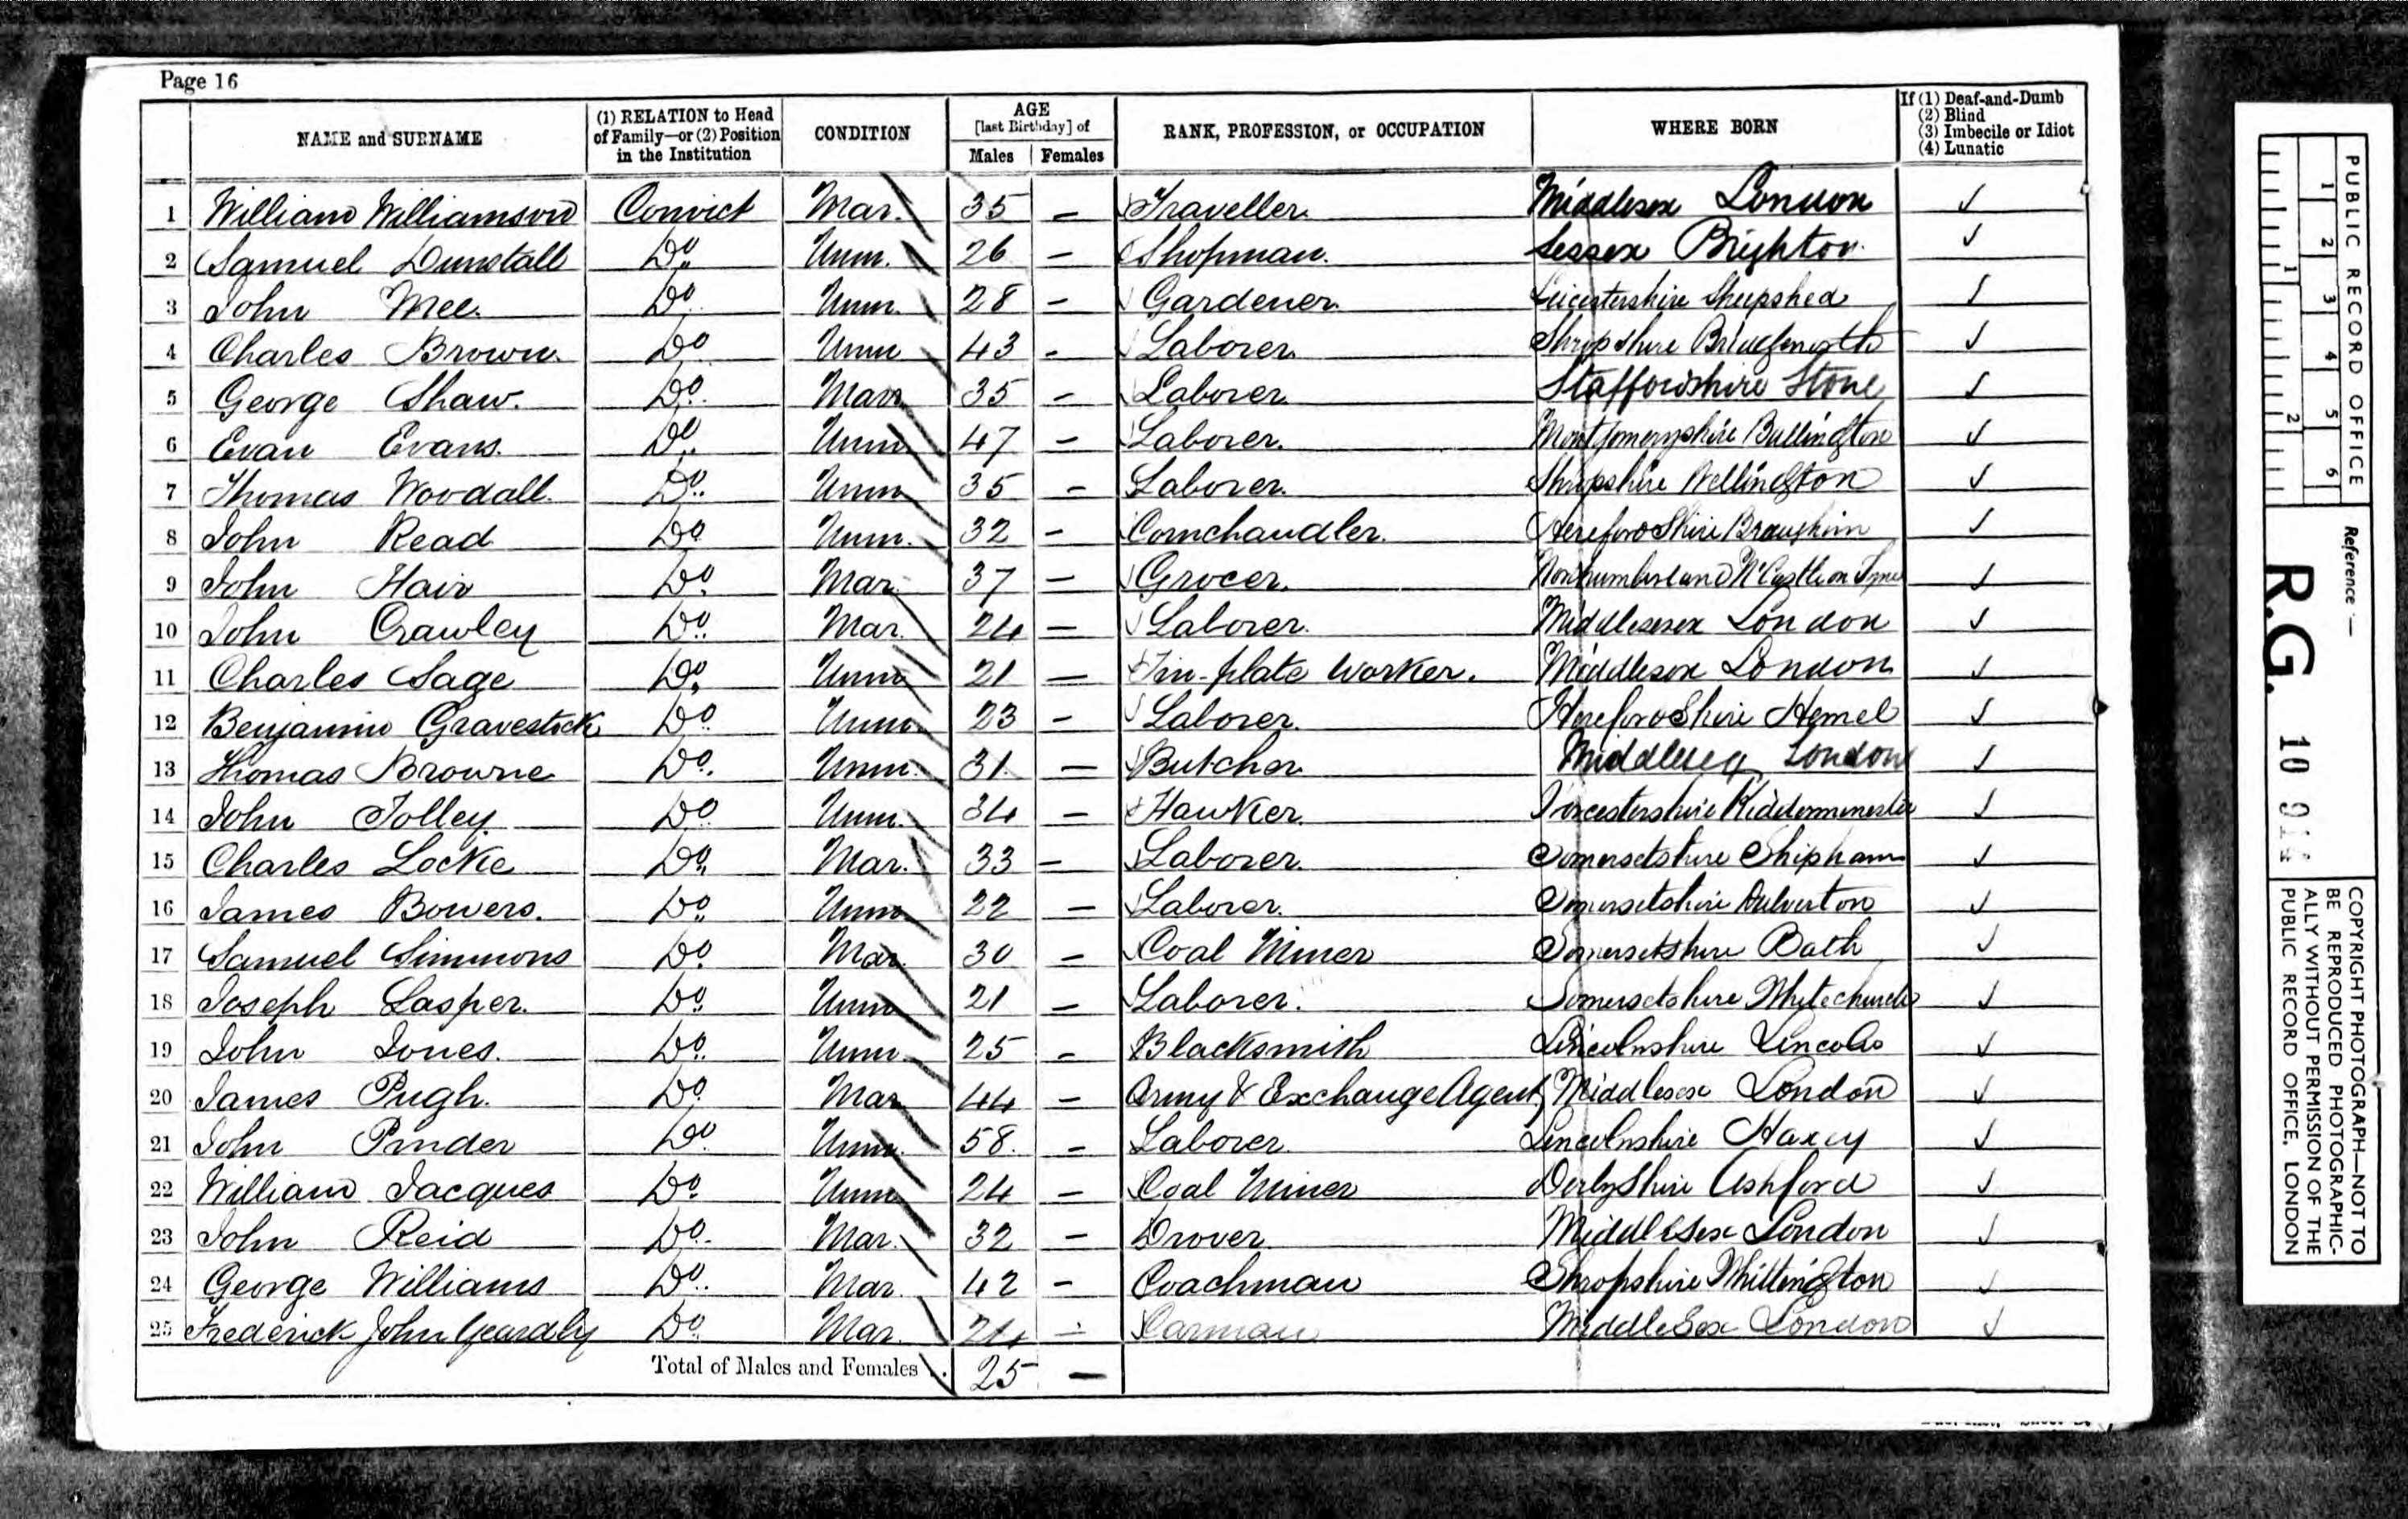 Page 16
NAME and SURNAME | (1) RELATION to Head of Family—or (2) Position in the Institution | CONDITION | AGE [last Birthday] of Males | Females | RANK, PROFESSION, or OCCUPATION | WHERE BORN | If (1) Deaf-and-Dumb (2) Blind (3) Imbecile or Idiot (4) Lunatic
1 William Williamson Convict Mar. 35 – Traveller Middlesex London ✓
2 Samuel Dunstall Do. Unm. 26 – Shopman. Sussex Brighton ✓
3 John Mee. Do. Unm. 28 – Gardener. Leicestershire Shepshed ✓
4 Charles Brown. Do Unm 43 – Laborer. Shropshire Bridgenorth ✓
5 George Shaw. Do. Marr 35 – Laborer Staffordshire Stone ✓
6 Evan Evans. Do. Unm 47 – Laborer. Montgomeryshire Bullington ✓
7 Thomas Woodall. Do. Unm 35 – Laborer. Shropshire Wellington ✓
8 John Read Do Unm. 32 – Cornchandler. Herefordshire ✓
9 John Hair Do. Mar. 37 – Grocer. Northumberland N'Castle on Tyne ✓
10 John Crawley Do. Mar. 24 – Laborer. Middlesex London ✓
11 Charles Sage Do. Unm 21 – Tin-plate Worker. Middlesex London ✓
12 Benjamin Gravestock Do Unm 23 – Laborer. Herefordshire Hemel ✓
13 Thomas Browne Do. Unm. 31. – Butcher Middlesex London ✓
14 John Tolley. Do. Unm. 34 – Hawker. Worcestershire Kidderminster ✓
15 Charles Locke Do. Mar. 33 – Laborer. Somersetshire Shipham ✓
16 James Bowers. Do. Unm 22 – Laborer. Somersetshire Dulverton ✓
17 Samuel Simmons Do. Mar. 30 – Coal Miner Somersetshire Bath ✓
18 Joseph Lasper. Do. Unm 21 – Laborer. Somersetshire Whitechurch ✓
19 John Jones. Do. Unm 25 – Blacksmith Lincolnshire Lincoln ✓
20 James Pugh. Do. Mar 44 – Army & Exchange Agent Middlesex London ✓
21 John Pinder Do. Unm. 58. – Laborer Lincolnshire Haxey ✓
22 William Jacques Do. Unm 24 – Coal Miner Derbyshire Ashford ✓
23 John Reid Do. Mar. 32 – Drover Middlesex London ✓
24 George Williams Do. Mar. 42 – Coachman Shropshire Whittington ✓
25 Frederick John Do. Mar. 24 – Carman Middlesex London ✓
Total of Males and Females . 25 –
PUBLIC RECORD OFFICE
1 2 3 4 5 6
1 2
Reference:—
R.G. 10
COPYRIGHT PHOTOGRAPH—NOT TO
BE REPRODUCED PHOTOGRAPHIC-
ALLY WITHOUT PERMISSION OF THE
PUBLIC RECORD OFFICE, LONDON